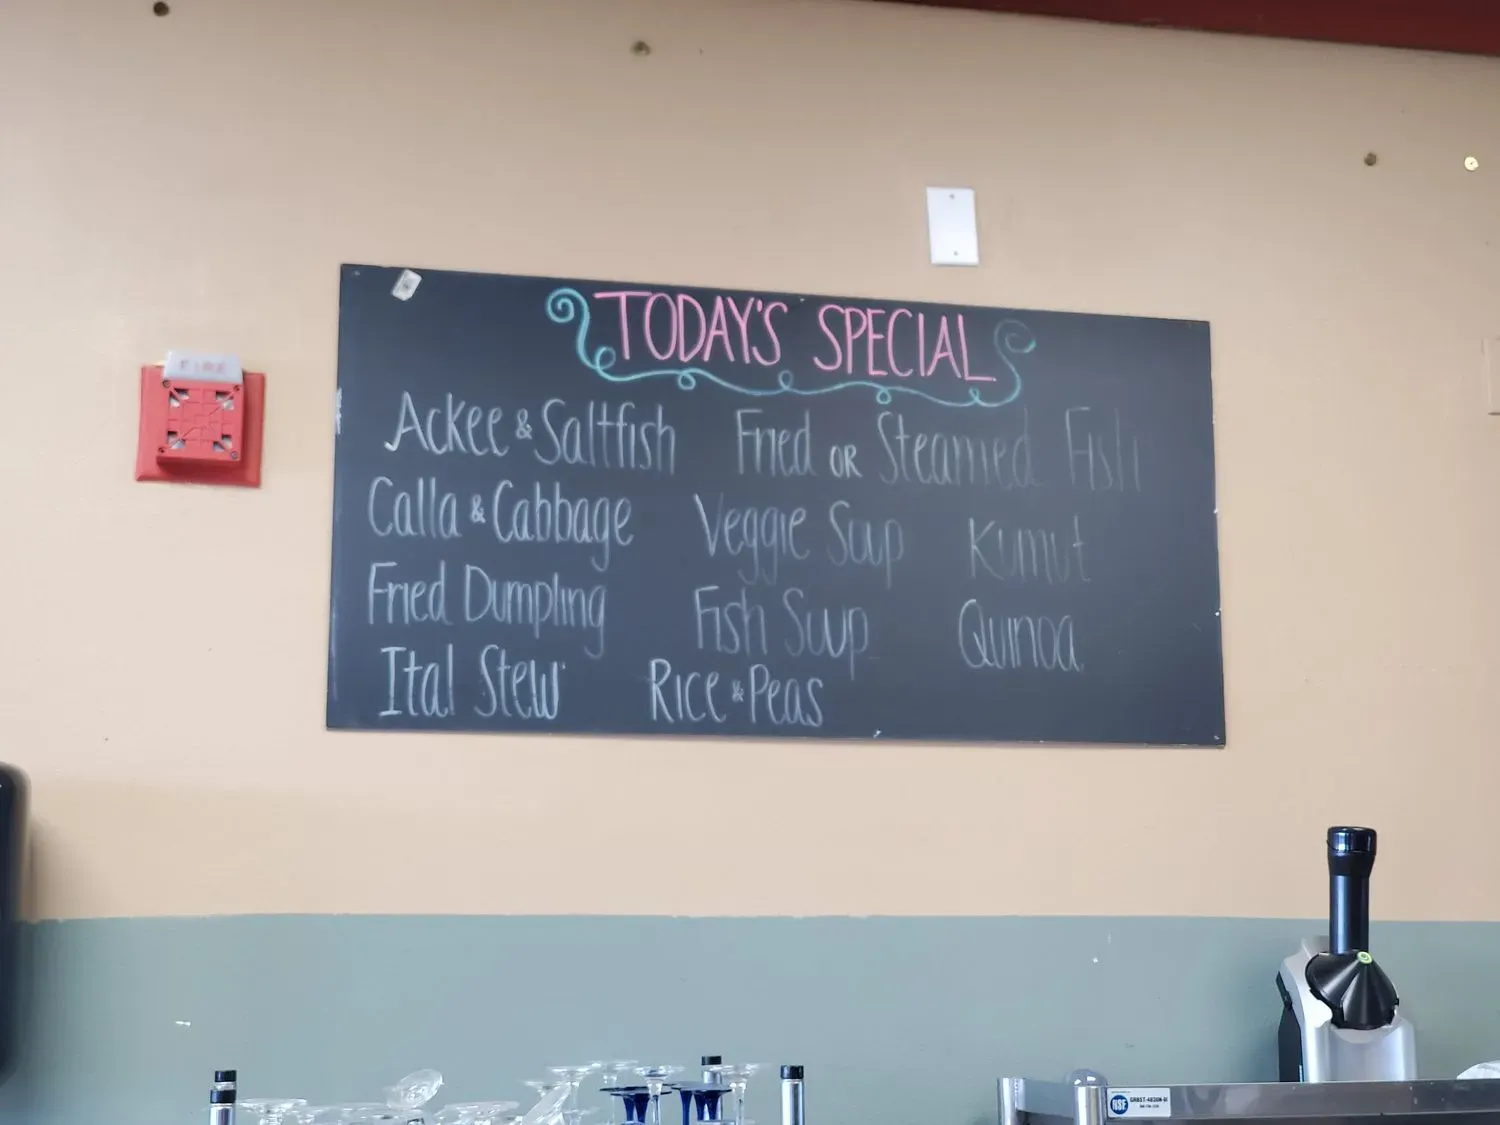 TODAY'S SPECIAL
Ackee & Saltfish Fried OR Steamed Fish
Calla & Cabbage Veggie Soup Kumut
Fried Dumpling Fish Soup Quinoa
Ital Stew Rice & Peas
FIRE
NSF